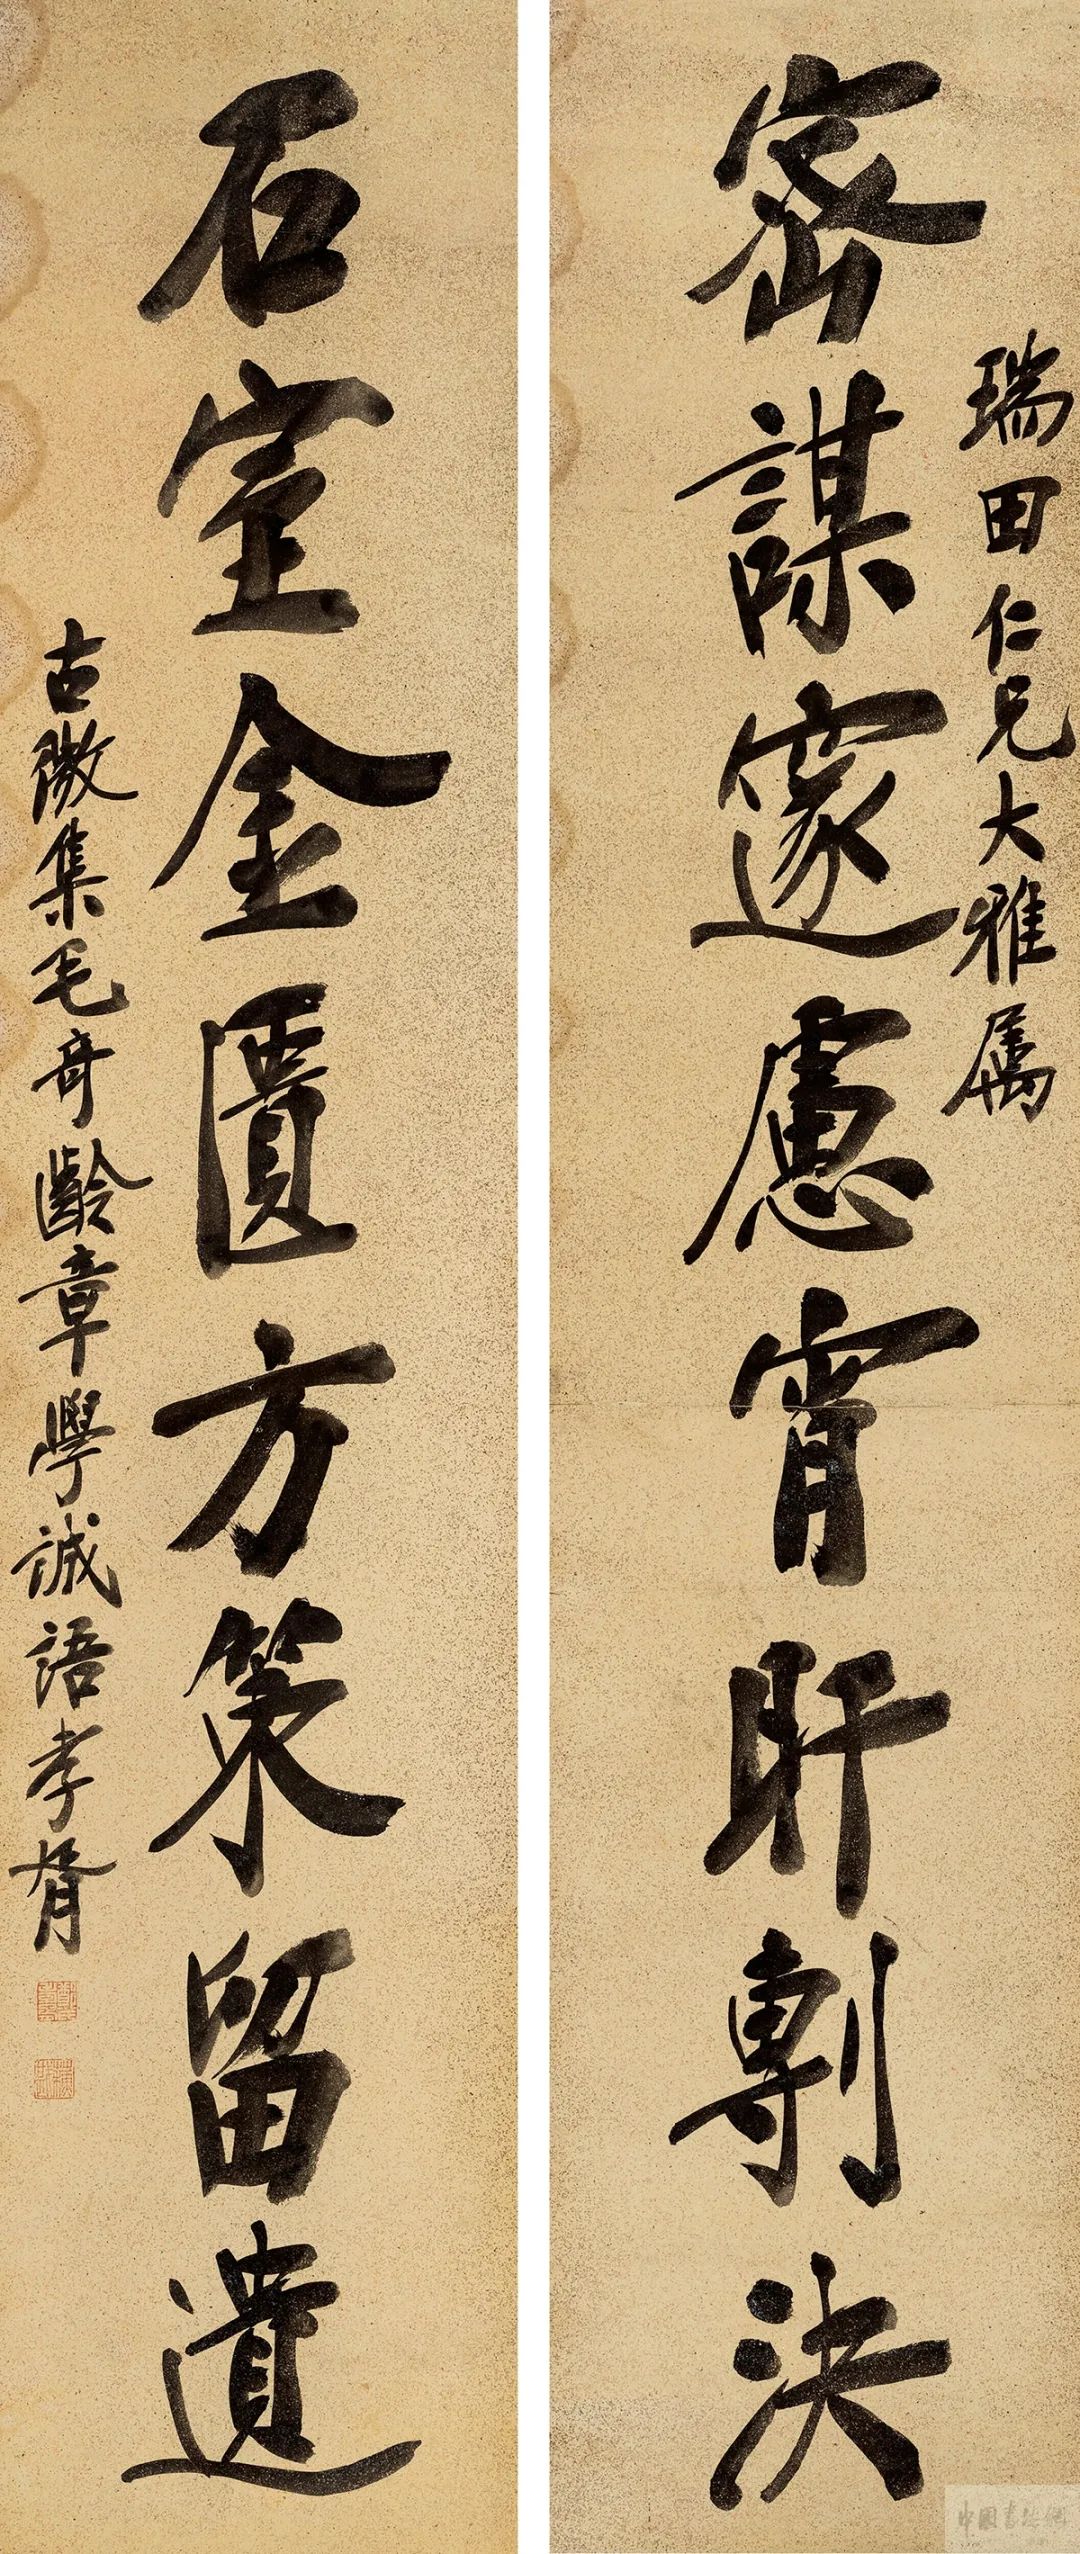 瑞田仁兄大雅属
密謀邃慮宵旰剸決
石室金匱方策留遺
古微集毛奇齡章學誠語孝胥
中国书法網